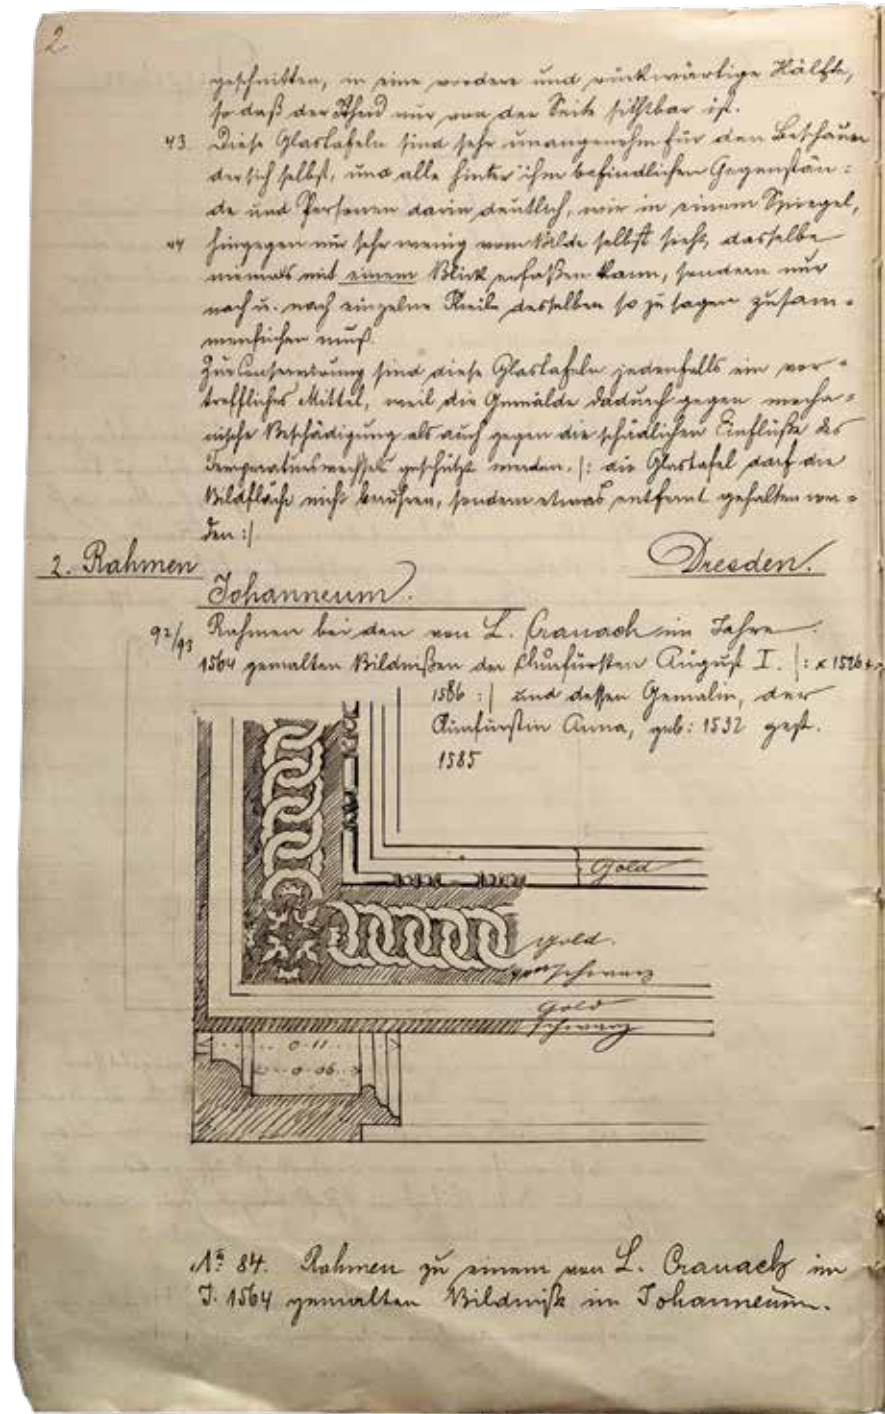 2
geschnitten, in eine vordere und rückwärtige Hälfte,
so daß der nur von der Seite sichtbar ist.
43 Diese Glastafeln sind sehr unangenehm für den Beschauer
der sich selbst, und alle hinter ihm befindlichen Gegenstän=
de und Personen darin deutlich, wie in einem Spiegel,
44 hingegen nur sehr wenig vom Bilde selbst sieht, dasselbe
niemals mit einem Blick erfaßen kann, sondern nur
nach u. nach einzelne Theile desselben so zu sagen zusam=
mensuchen muß.
Zur Conservirung sind diese Glastafeln jedenfalls ein vor=
treffliches Mittel, weil die Gemälde dadurch gegen mecha=
nische Beschädigung als auch gegen die schädlichen Einflüße des
Temperaturwechsels geschützt werden. |: die Glastafel darf die
Bildfläche nicht berühren, sondern etwas entfernt gehalten wer=
den :|
2. Rahmen Dresden.
Johanneum.
92/93 Rahmen bei den von L. Cranach im Jahre
1564 gemalten Bildnißen der Churfürsten August I. |: x 1526 +
1586 :| und dessen Gemalin, der
Kurfürstin Anna, geb: 1532 gest.
1585
Gold
gold.
schwarz
gold
schwarz
0.11
0.06
No 84. Rahmen zu einem von L. Cranach im
J. 1564 gemalten Bildniß im Johanneum.